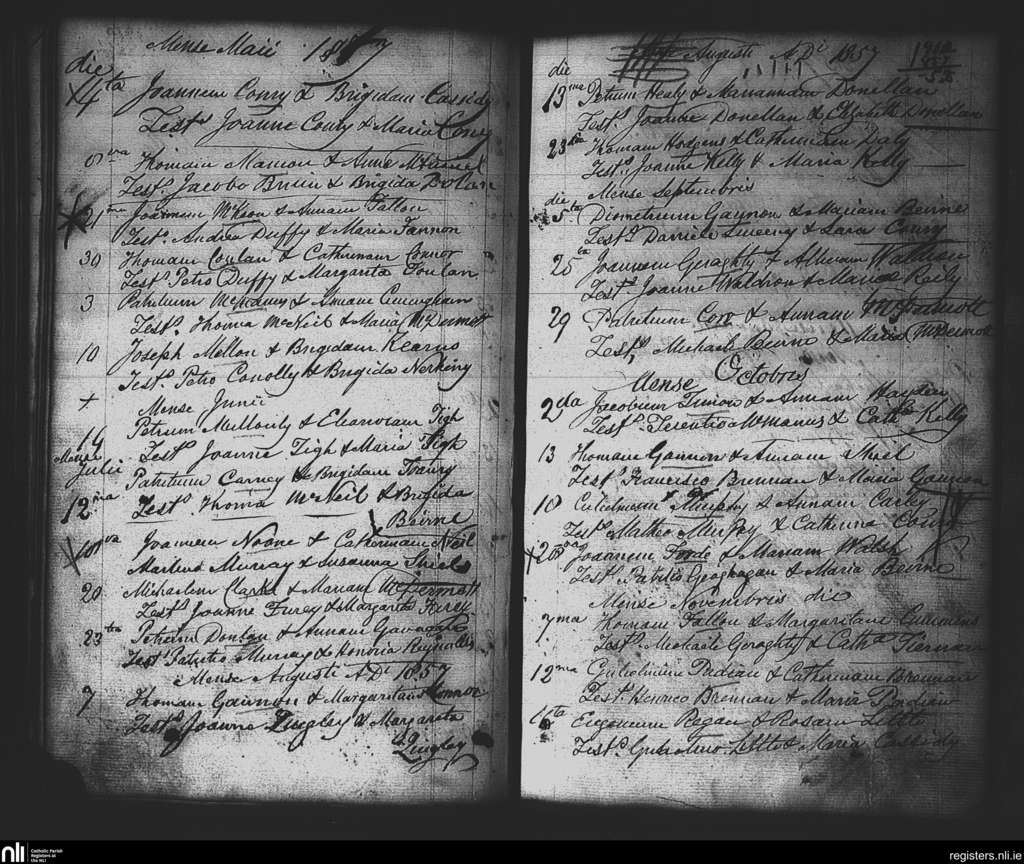 Mense Maii 1857
die
4ta Joannem Conry & Brigidam Cassidy
Tests Joanne Conry & Maria Conry
8va Thomam Mannon & Anne
Tests Jacobo Bruin & Brigida Dolan
21 Joannem McKeon & Annam Fallon
Tests. Andrea Duffy & Maria Fannon
30 Thomam Conlan & Catherinam Connor
Tests Petro Duffy & Margarita Conlan
3 Patritium & Annam Cunningham
Tests. Thoma McNeil & Maria McDermott
10 Joseph Mellon & Brigidam Kearns
Tests. Petro Conolly & Brigida Nerheny
Mense Junii
14 Petrum Mullouly & Elenoram Tigh
Tests Joanne Tigh & Maria Tigh
Mense Julii
12ma Patritium Carney & Brigidam
Tests. Thoma McNeil & Brigida
Beirne
18va Joannem Noone & Catherinam Neil
Murray & Susanna Shiels
20 Michaelem Clarke & Mariam McDermott
Tests Joanne Furey & Margarita Furey
23 Petrum Donlan & Annam
Tests Patritio Murray & Honoria Reynolds
Mense Augusti A Di 1857
7 Thomam Gannon & Margaritam Connor
Tests Joanne Quigley & Margareta
Quigley
Augusti A Di 1857
die
13 Petrum Healy & Mariannam Donellan
Tests. Joanne Donellan & Elizabeth Donellan
23 Thomam Hodgens & Catherinam Daly
Tests. Joanne Kelly & Maria Kelly
Mense Septembris
die
5ta Dimetrium Gaynon & Mariam Beirne
Tests Daniele Sweeny & Sara Conry
25ta Joannem Geraghty & Waldron
Tests Joanne Waldron & Maria Reily
29 Patritium Cox & Annam McDermott
Tests, Michaele Beirne & Maria McDermott
Mense Octobris
2da Jacobum Timon & Annam Hayden
Tests. Terentio McManus & Cath Kelly
13 Thomam Gannon & Annam Shiel
Tests Francisco Brennan & Maria Gannon
18 Gulielmum Murphy & Annam Carley
Tests Matheo Murphy & Catherina Conry
28va Joannem Forde & Mariam Walsh
Tests. Patritio Geoghagan & Maria Beirne
Mense Novembris die
7ma Thomam Fallon & Margaritam Cummins
Tests. Michaele Geraghty & Catha Tiernan
12ma Gulielmum Padian & Catherinam Brennan
Tests. Henrico Brennan & Maria Padian
Eugenium Regan & Rosam Little
Tests. Little & Maria Cassidy
nli
Catholic Parish
Registers at
the NLI
registers.nli.ie